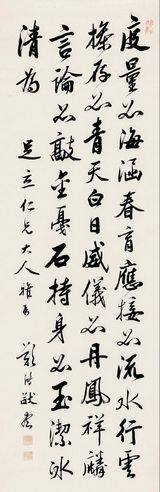 度量必海涵春育應接必流水行雲
操存必青天白日威儀必丹鳳祥麟
言論必敲金戛石持身必玉潔冰
清為
足立仁兄大人雅屬
鄭沅